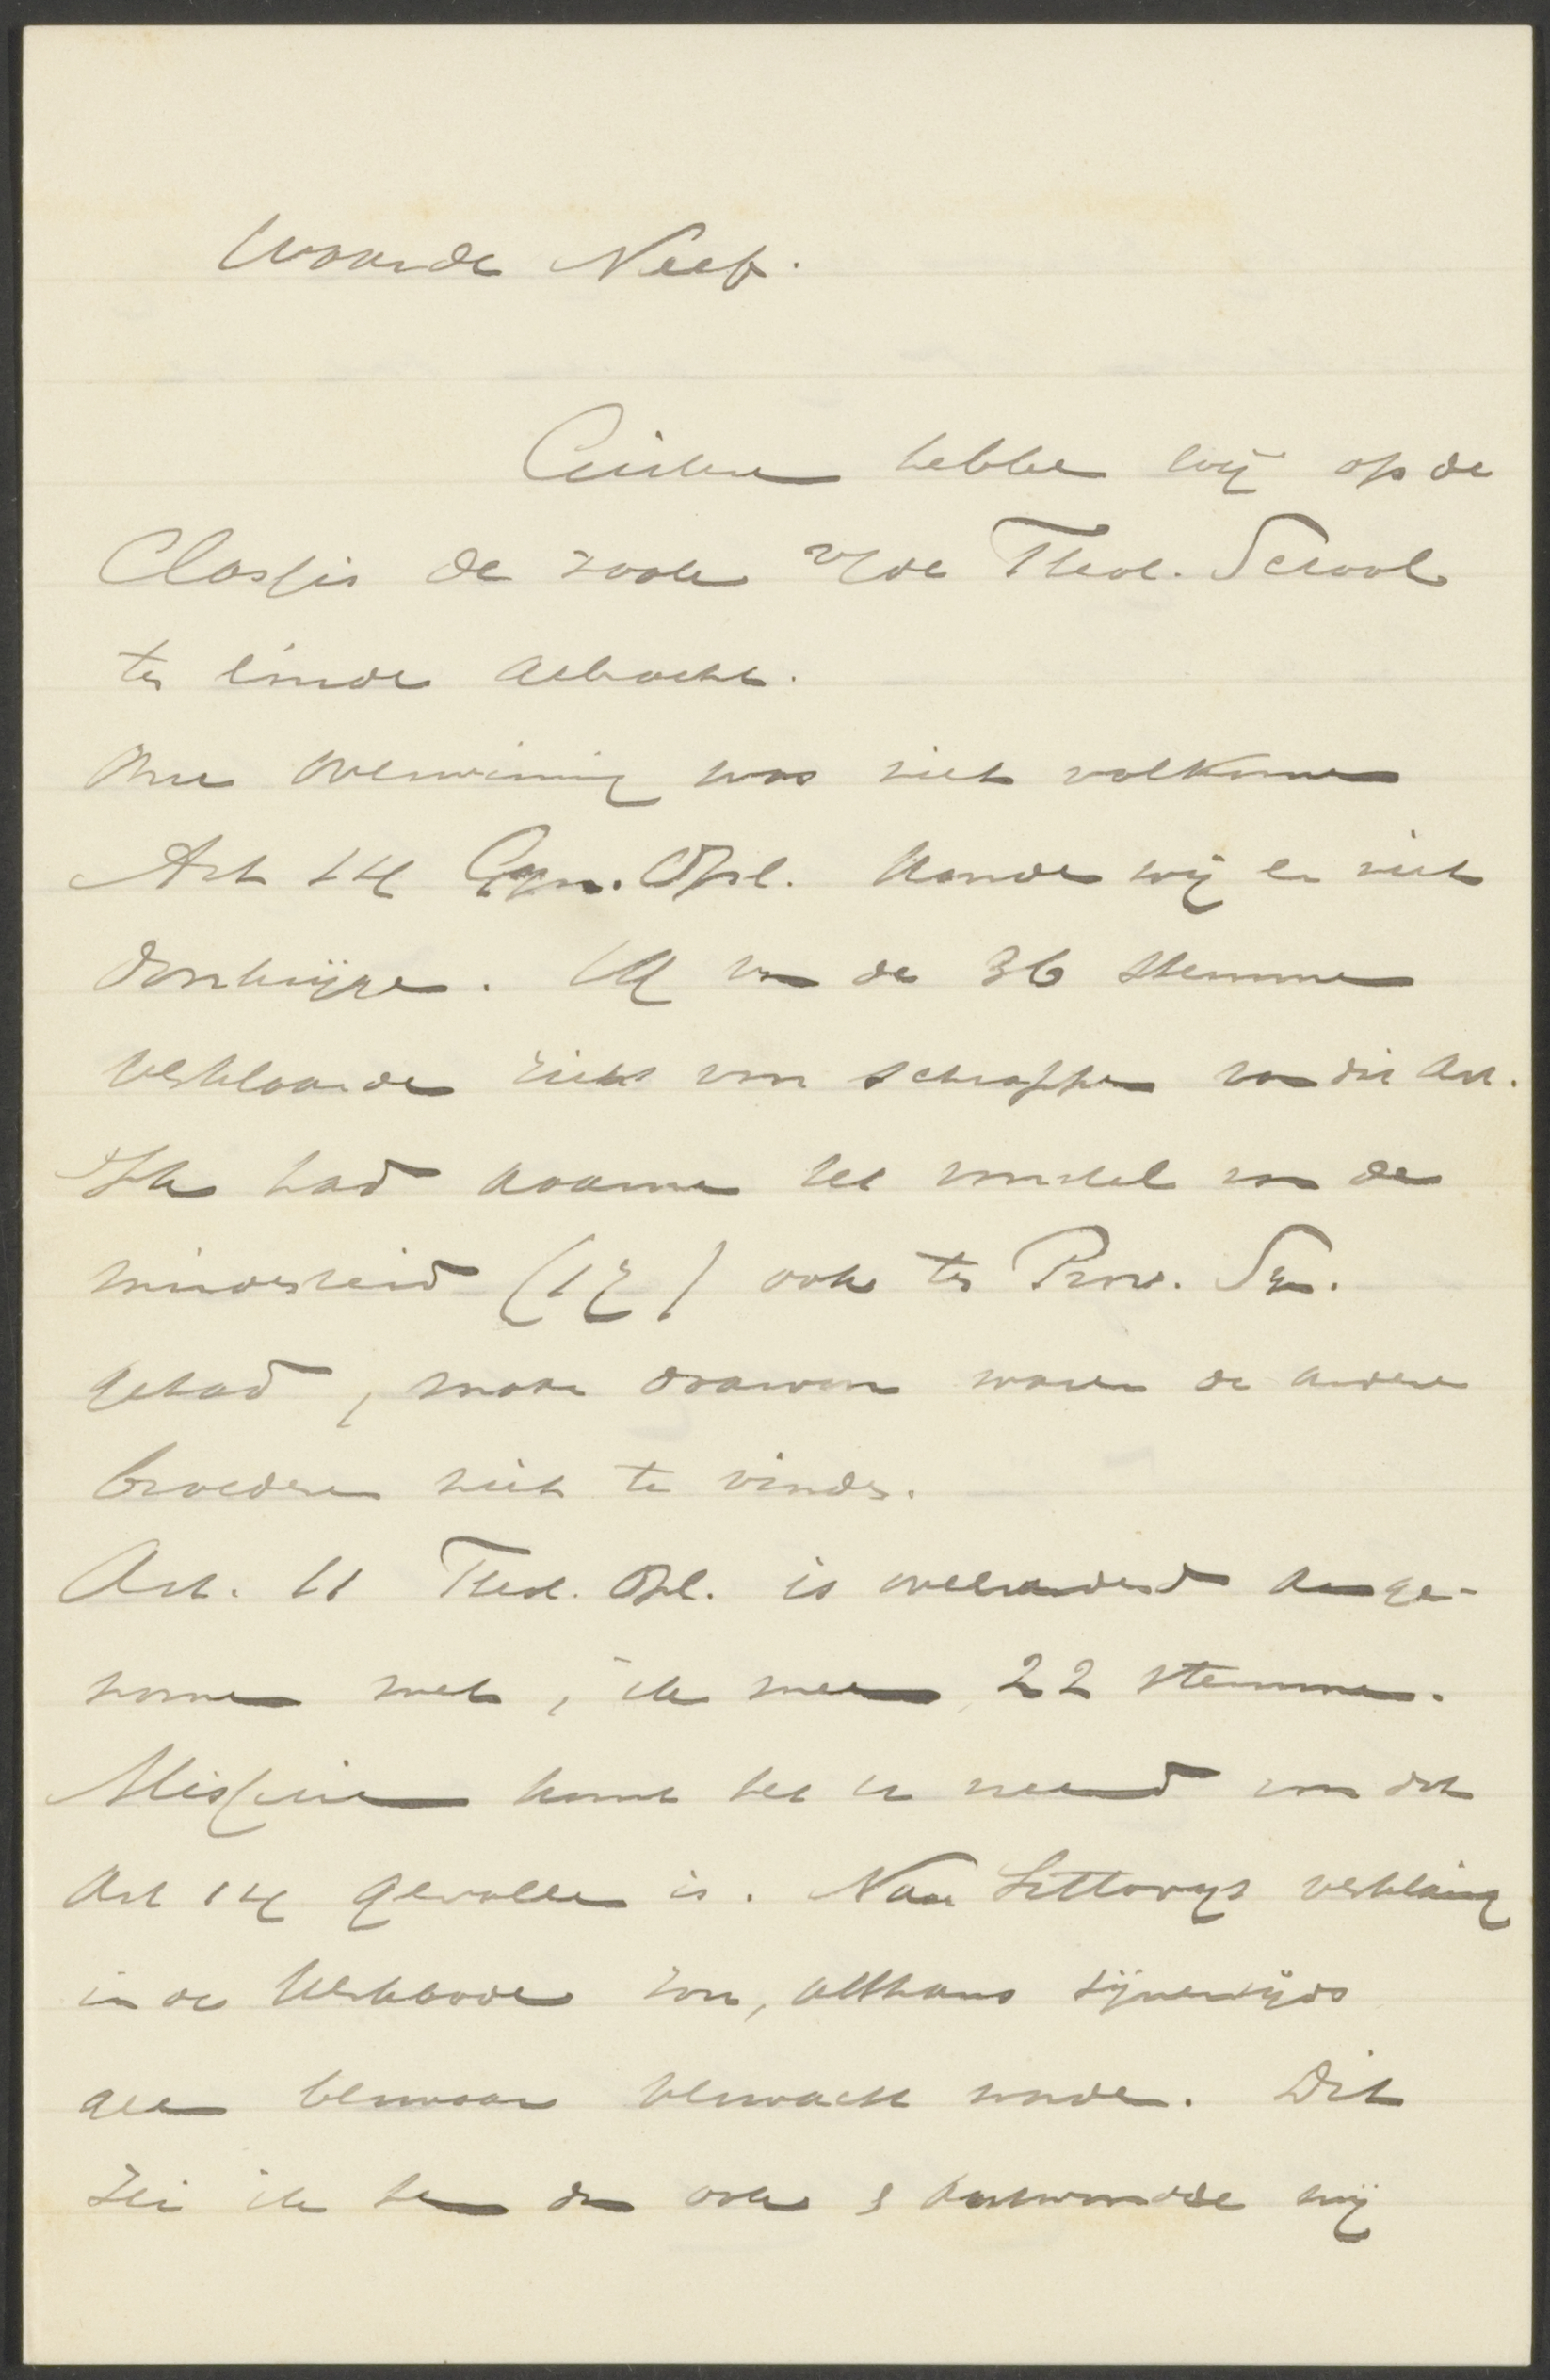 Waarde Neef.
Gisteren hebben wij op de
Classis de zaak v/de Theol. School
ten einde gebracht.
Onze overwinning was niet volkomen
Art 14 Gymn. Opl. konden wij er niet
doorkrijgen. 19 van de 36 stemmen
verklaarden zich voor schrappen van die Art.
Ik had daarna het voorstel van de
minderheid (17) ook ter Prov. Syn.
gehad, maar daarvoor waren de andere
broederen niet te vinden.
Art. 11 Theol. Opl. is onveranderd aange-
nomen met, ik meen, 22 stemmen.
Misschien komt het er need van dat
Art 14 gevallen is. Naar Littooys verklaring
in de Kerkbode zou, althans zijnerzijds
geen bezwaar verwacht worden. Dit
zei ik hem dan ook & antwoordde mij